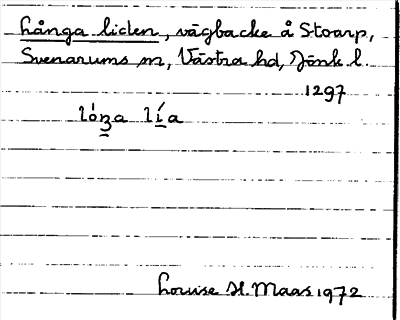 Långa liden, vägbacke å Stoarp,
Svenarums sn, Västra hd, Jönk l.
1297
lóŋa lía
Louise H. Maas 1972